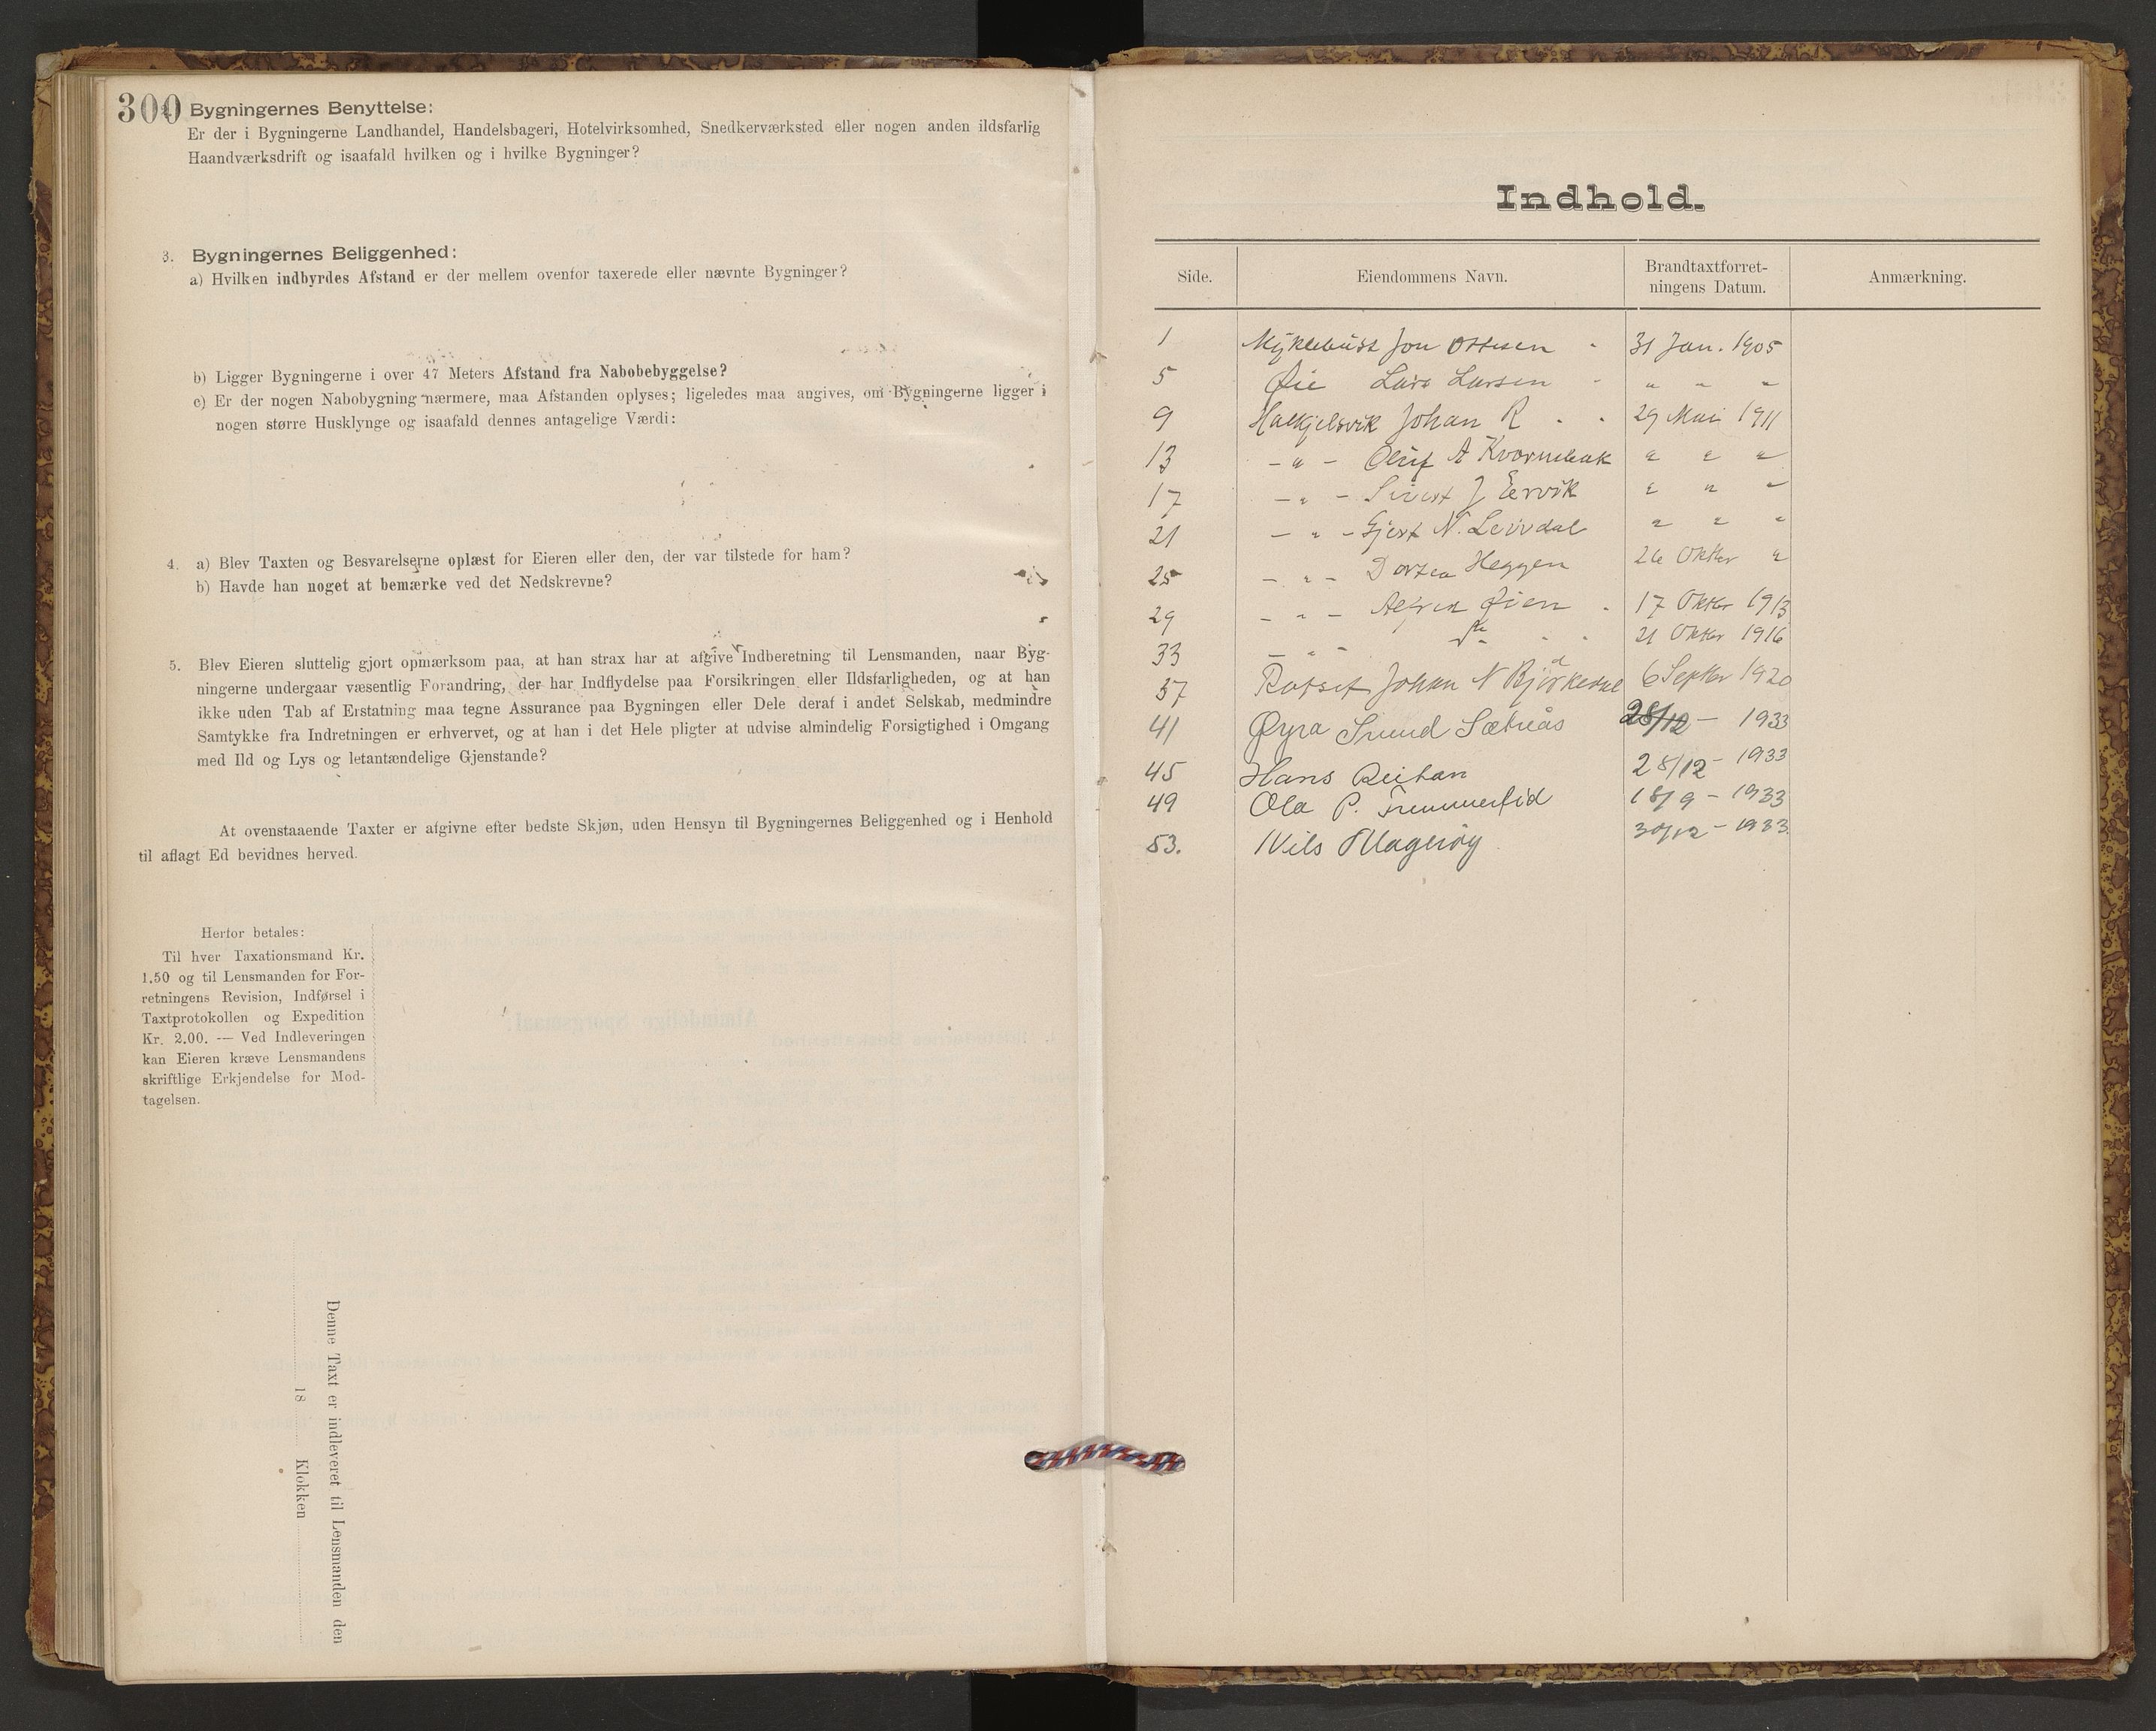 300 Bygningernes Benyttelse:
Er der i Bygningerne Landhandel, Handelsbageri, Hotelvirksomhed, Snedkerværksted eller nogen anden ildsfarlig
Haandværksdrift og isaafald hvilken og i hvilke Bygninger?
3. Bygningernes Beliggenhed:
a) Hvilken indbyrdes Afstand er der mellem ovenfor taxerede eller nævnte Bygninger?
b) Ligger Bygningerne i over 47 Meters Afstand fra Nabobebyggelse?
c) Er der nogen Nabobygning nærmere, maa Afstanden oplyses; ligeledes maa angives, om Bygningerne ligger i
nogen større Husklynge og isaafald dennes antagelige Værdi:
4. a) Blev Taxten og Besvarelserne oplæst for Eieren eller den, der var tilstede for ham?
b) Havde han noget at bemærke ved det Nedskrevne?
5. Blev Eieren sluttelig gjort opmærksom paa, at han strax har at afgive Indberetning til Lensmanden, naar Byg-
ningerne undergaar væsentlig Forandring, der har Indflydelse paa Forsikringen eller Ildsfarligheden, og at han
ikke uden Tab af Erstatning maa tegne Assurance paa Bygningen eller Dele deraf i andet Selskab, medmindre
Samtykke fra Indretningen er erhvervet, og at han i det Hele pligter at udvise almindelig Forsigtighed i Omgang
med Ild og Lys og letantændelige Gjenstande?
At ovenstaaende Taxter er afgivne efter bedste Skjøn, uden Hensyn til Bygningernes Beliggenhed og i Henhold
til aflagt Ed bevidnes herved.
Herfor betales:
Til hver Taxationsmand Kr.
1.50 og til Lensmanden for For-
retningens Revision, Indførsel i
Taxtprotokollen og Expedition
Kr. 2.00. — Ved Indleveringen
kan Eieren kræve Lensmandens
skriftlige Erkjendelse for Mod-
tagelsen.
Denne Taxt er indleveret til Lensmanden den
18 Klokken
Indhold.
Side. Eiendommens Navn. Brandtaxtforret-
ningens Datum. Anmærkning.
1 Myklebust Jon Ottesen - 31 Jan. 1905
5 Øie Lars Larsen - " " "
9 Halkjelsvik Johan R - - 29 Mai 1911
13 - " - Oluf A Kvarnebak " " "
17 - " - Sivert J Ervik " " "
21 - " - Gjert N. Leivdal " " "
25 - " - Dortea Heggen 26 Oktbr "
29 - " - Alfred Øien - 17 Oktbr 1913
33 - " - - - 21 Oktbr 1916
37 Rotset Johan N Bjørkedal 6 Septbr 1920
41 Øyra Sætnås 28/12 - 1933
45 Hans Reitan 28/12 - 1933
49 Ola P. 18/9 - 1933
53. Nils Magerøy 30/12 - 1933